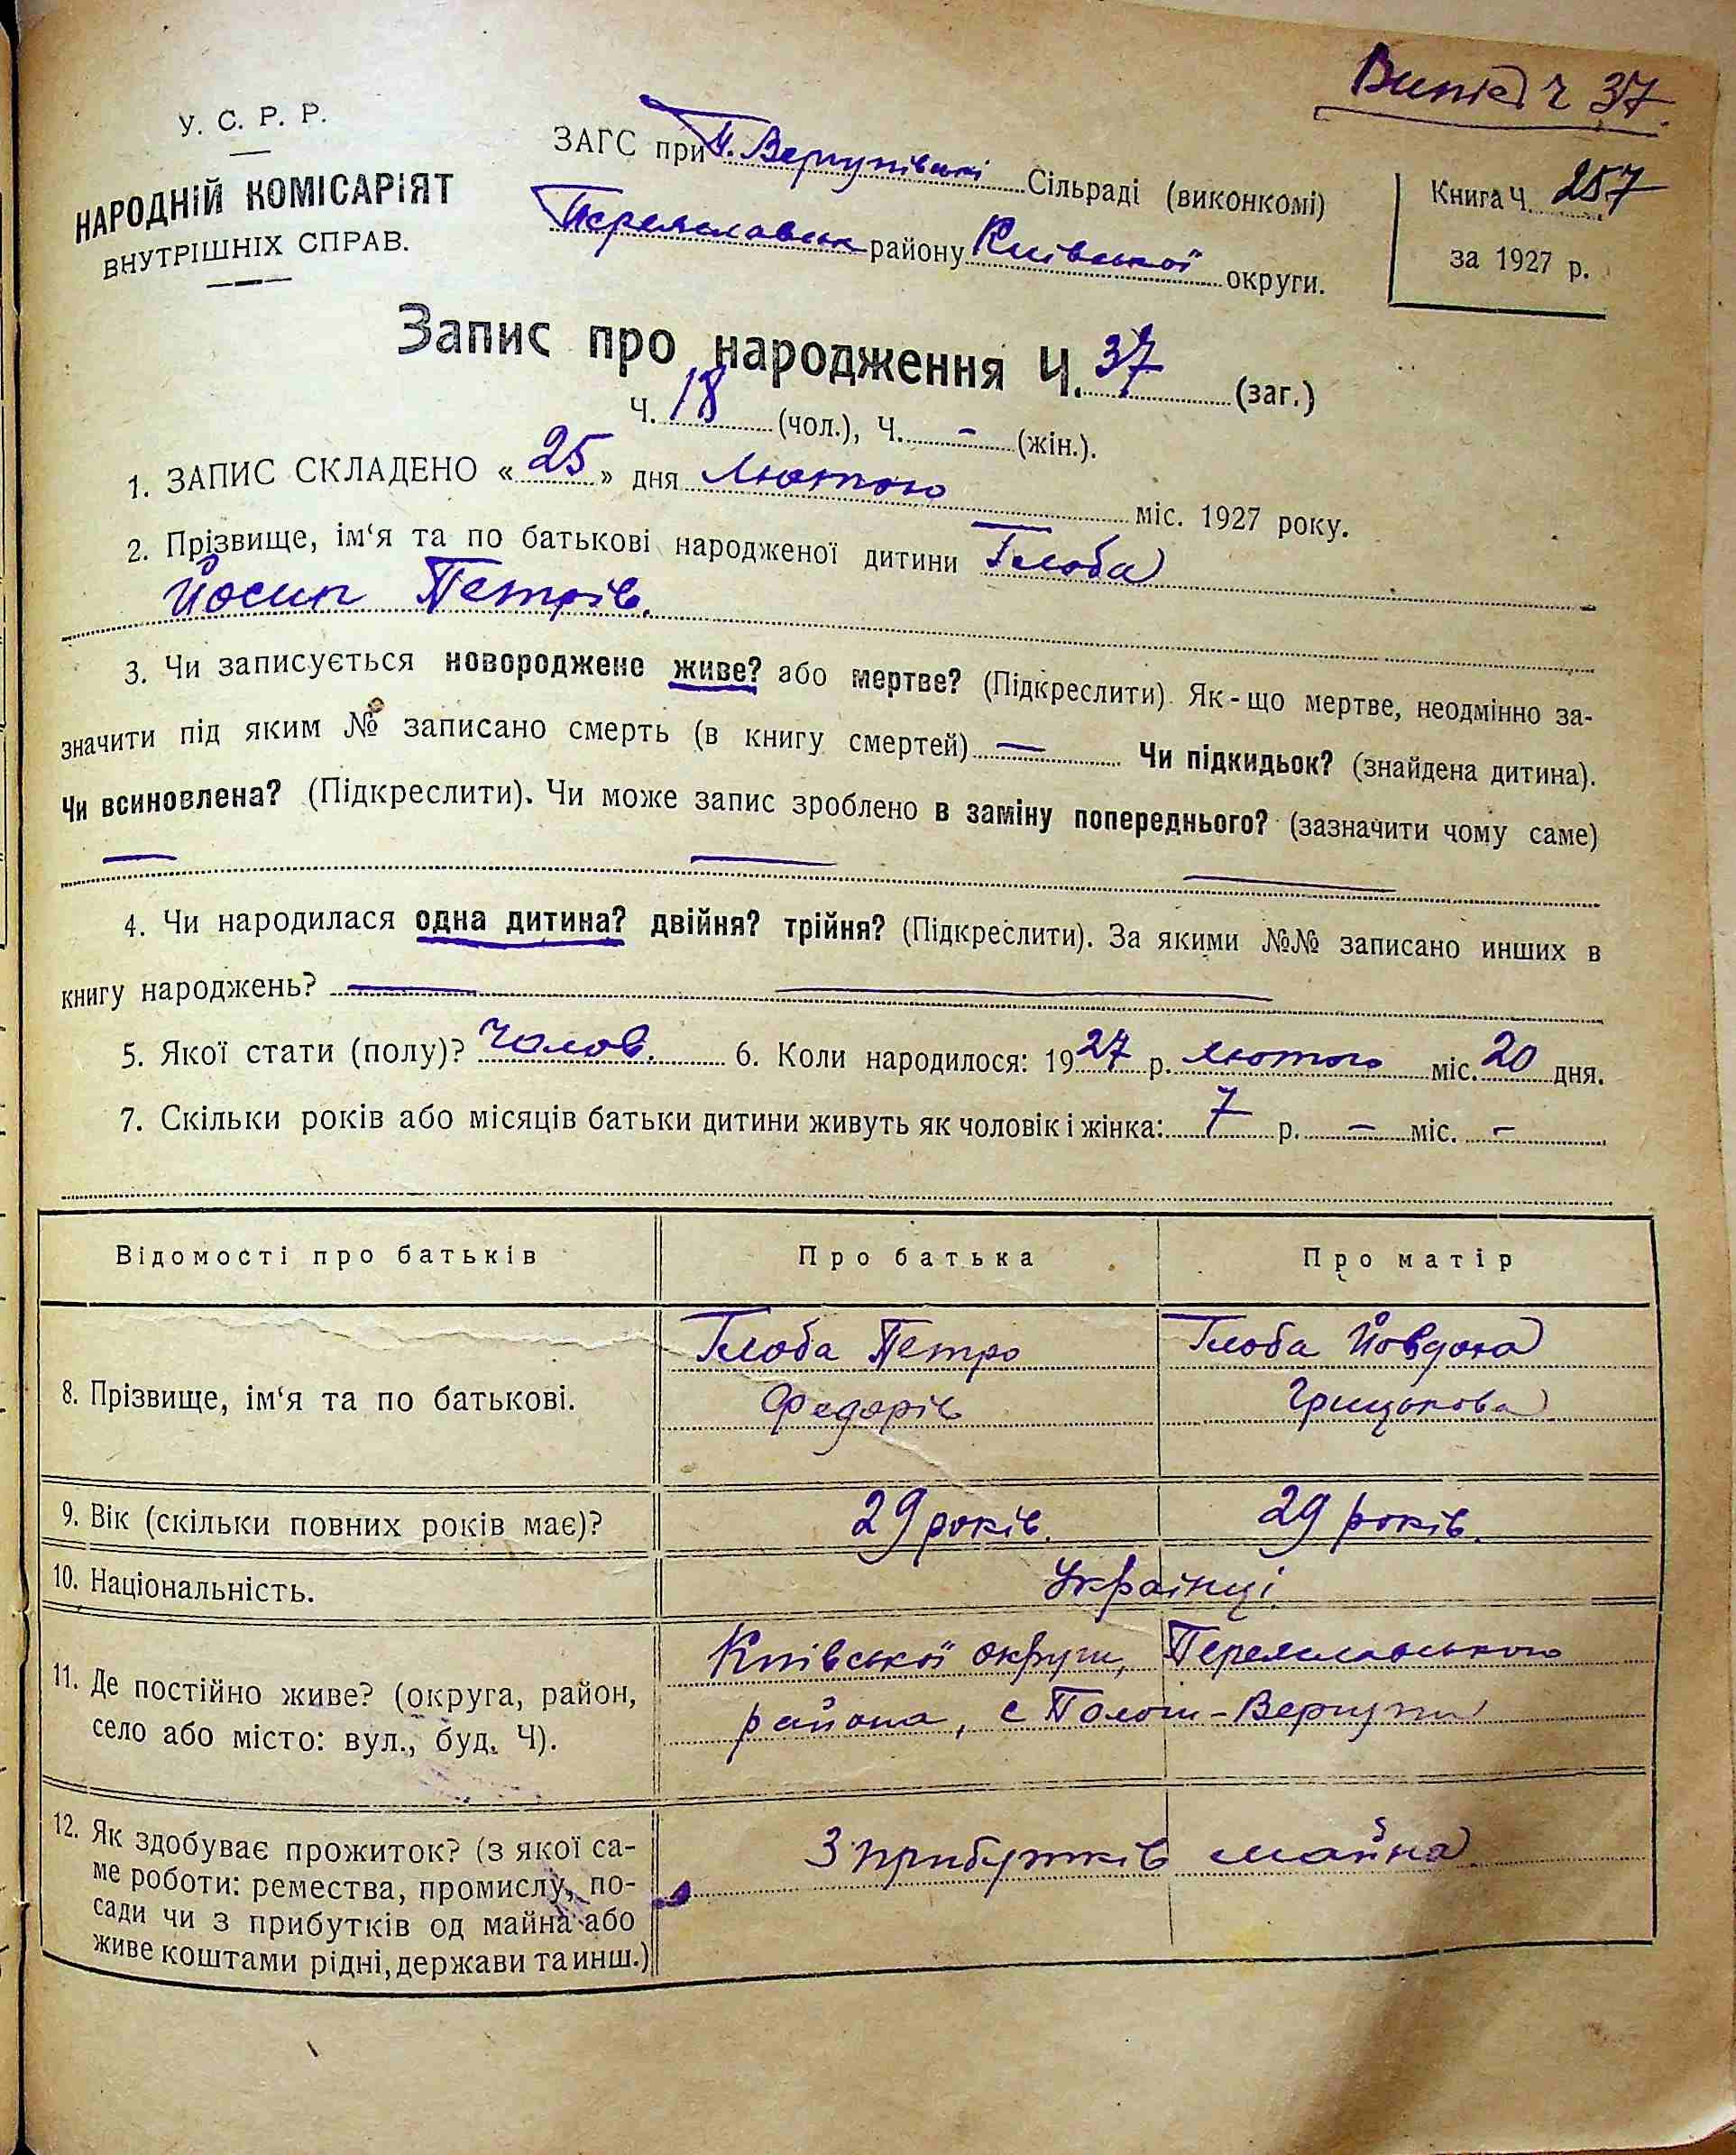 Випис ч 37
У. С. Р. Р.
НАРОДНІЙ КОМІСАРІЯТ
ВНУТРІШНІХ СПРАВ.
ЗАГС при П. Вергунівські Сільраді (виконкомі)
Переяславськ району Київської округи.
Книга Ч. 257
за 1927 р.
Запис про народження Ч. 37 (заг.)
Ч. 18 (чол.), Ч. - (жін.).
1. ЗАПИС СКЛАДЕНО « 25 » дня Лютого міс. 1927 року.
2. Прізвище, ім‘я та по батькові народженої дитини Глоба
Йосип Петрів.
3. Чи записується новороджене живе? або мертве? (Підкреслити). Як-що мертве, неодмінно за-
значити під яким № записано смерть (в книгу смертей) — Чи підкидьок? (знайдена дитина).
Чи всиновлена? (Підкреслити). Чи може запис зроблено в заміну попереднього? (зазначити чому саме)
4. Чи народилася одна дитина? двійня? трійня? (Підкреслити). За якими №№ записано инших в
книгу народжень?
5. Якої стати (полу)? Чолов. 6. Коли народилося: 1927 р. лютого міс. 20 дня.
7. Скільки років або місяців батьки дитини живуть як чоловік і жінка: 7 р. - міс. -
Відомості про батьків Про батька Про матір
8. Прізвище, ім‘я та по батькові.
Глоба Петро
Федорів
Глоба Йовдоха
Грицькова
9. Вік (скільки повних років має)? 29 років. 29 років.
10. Національність. Українці.
11. Де постійно живе? (округа, район,
село або місто: вул., буд. Ч).
Київської округи, Переяславського
района, с Пологи-Вергуни
12. Як здобуває прожиток? (з якої са-
ме роботи: ремества, промислу, по-
сади чи з прибутків од майна або
живе коштами рідні, держави та инш.)
З прибутків майна